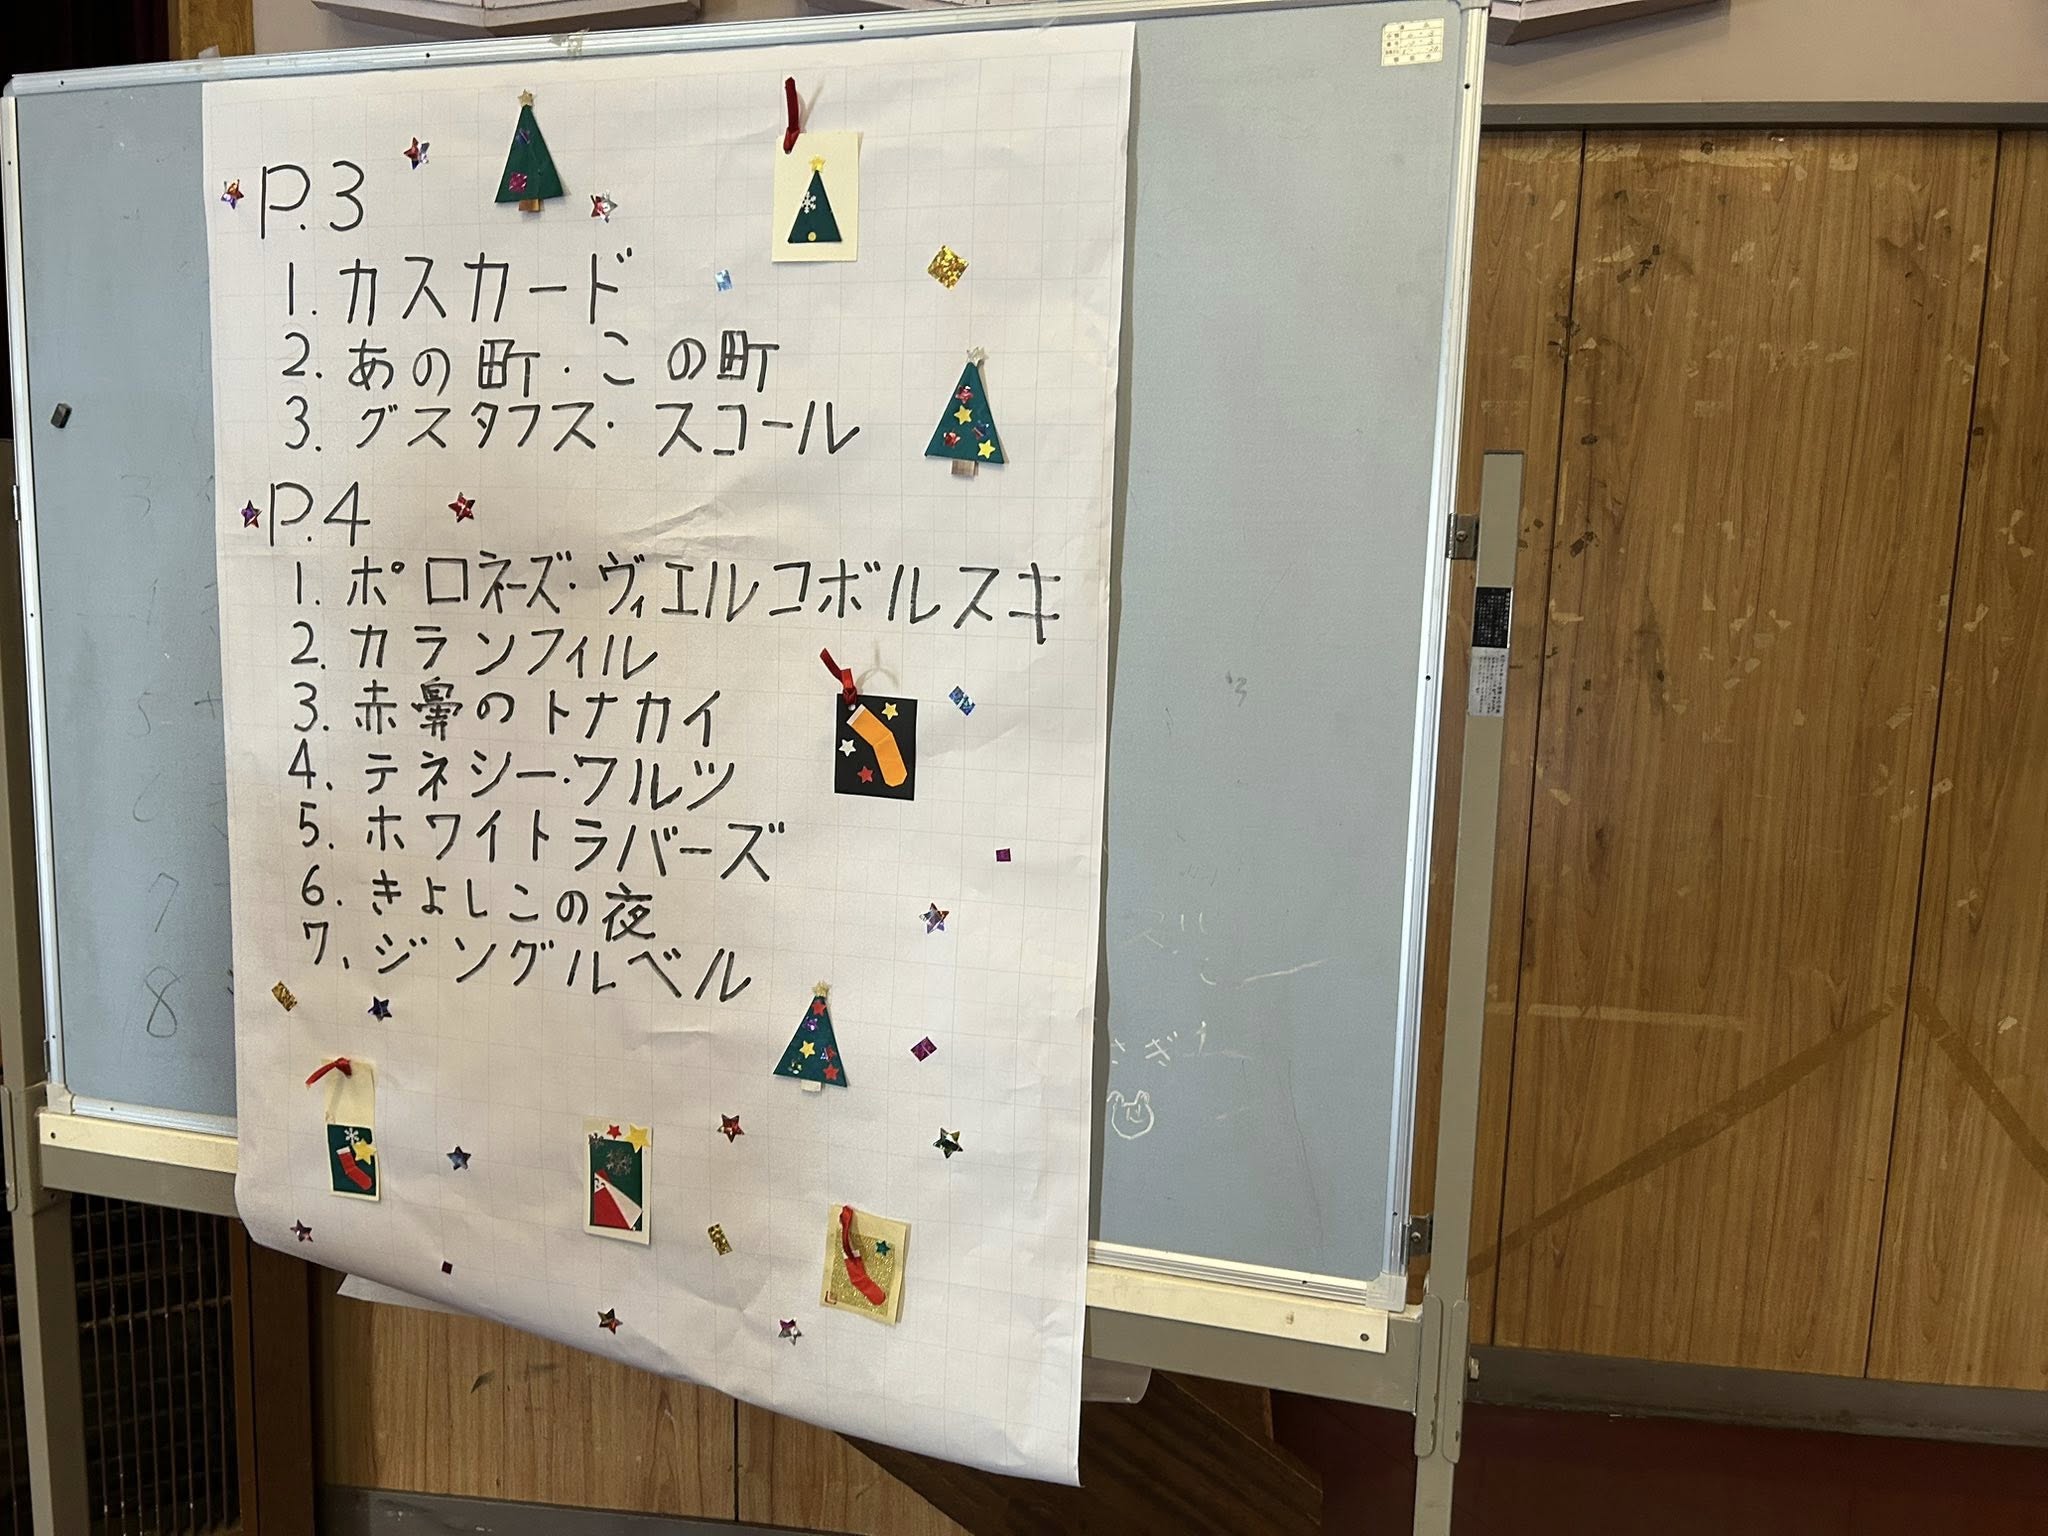 P.3
1. カスカード
2. あの町・この町
3. グスタフス・スコール
P.4
1. ポロネーズ・ヴィエルコポルスキ
2. カランフィル
3. 赤鼻のトナカイ
4. テネシー・ワルツ
5. ホワイトラバーズ
6. きよしこの夜
7. ジングルベル
3
5
7
8